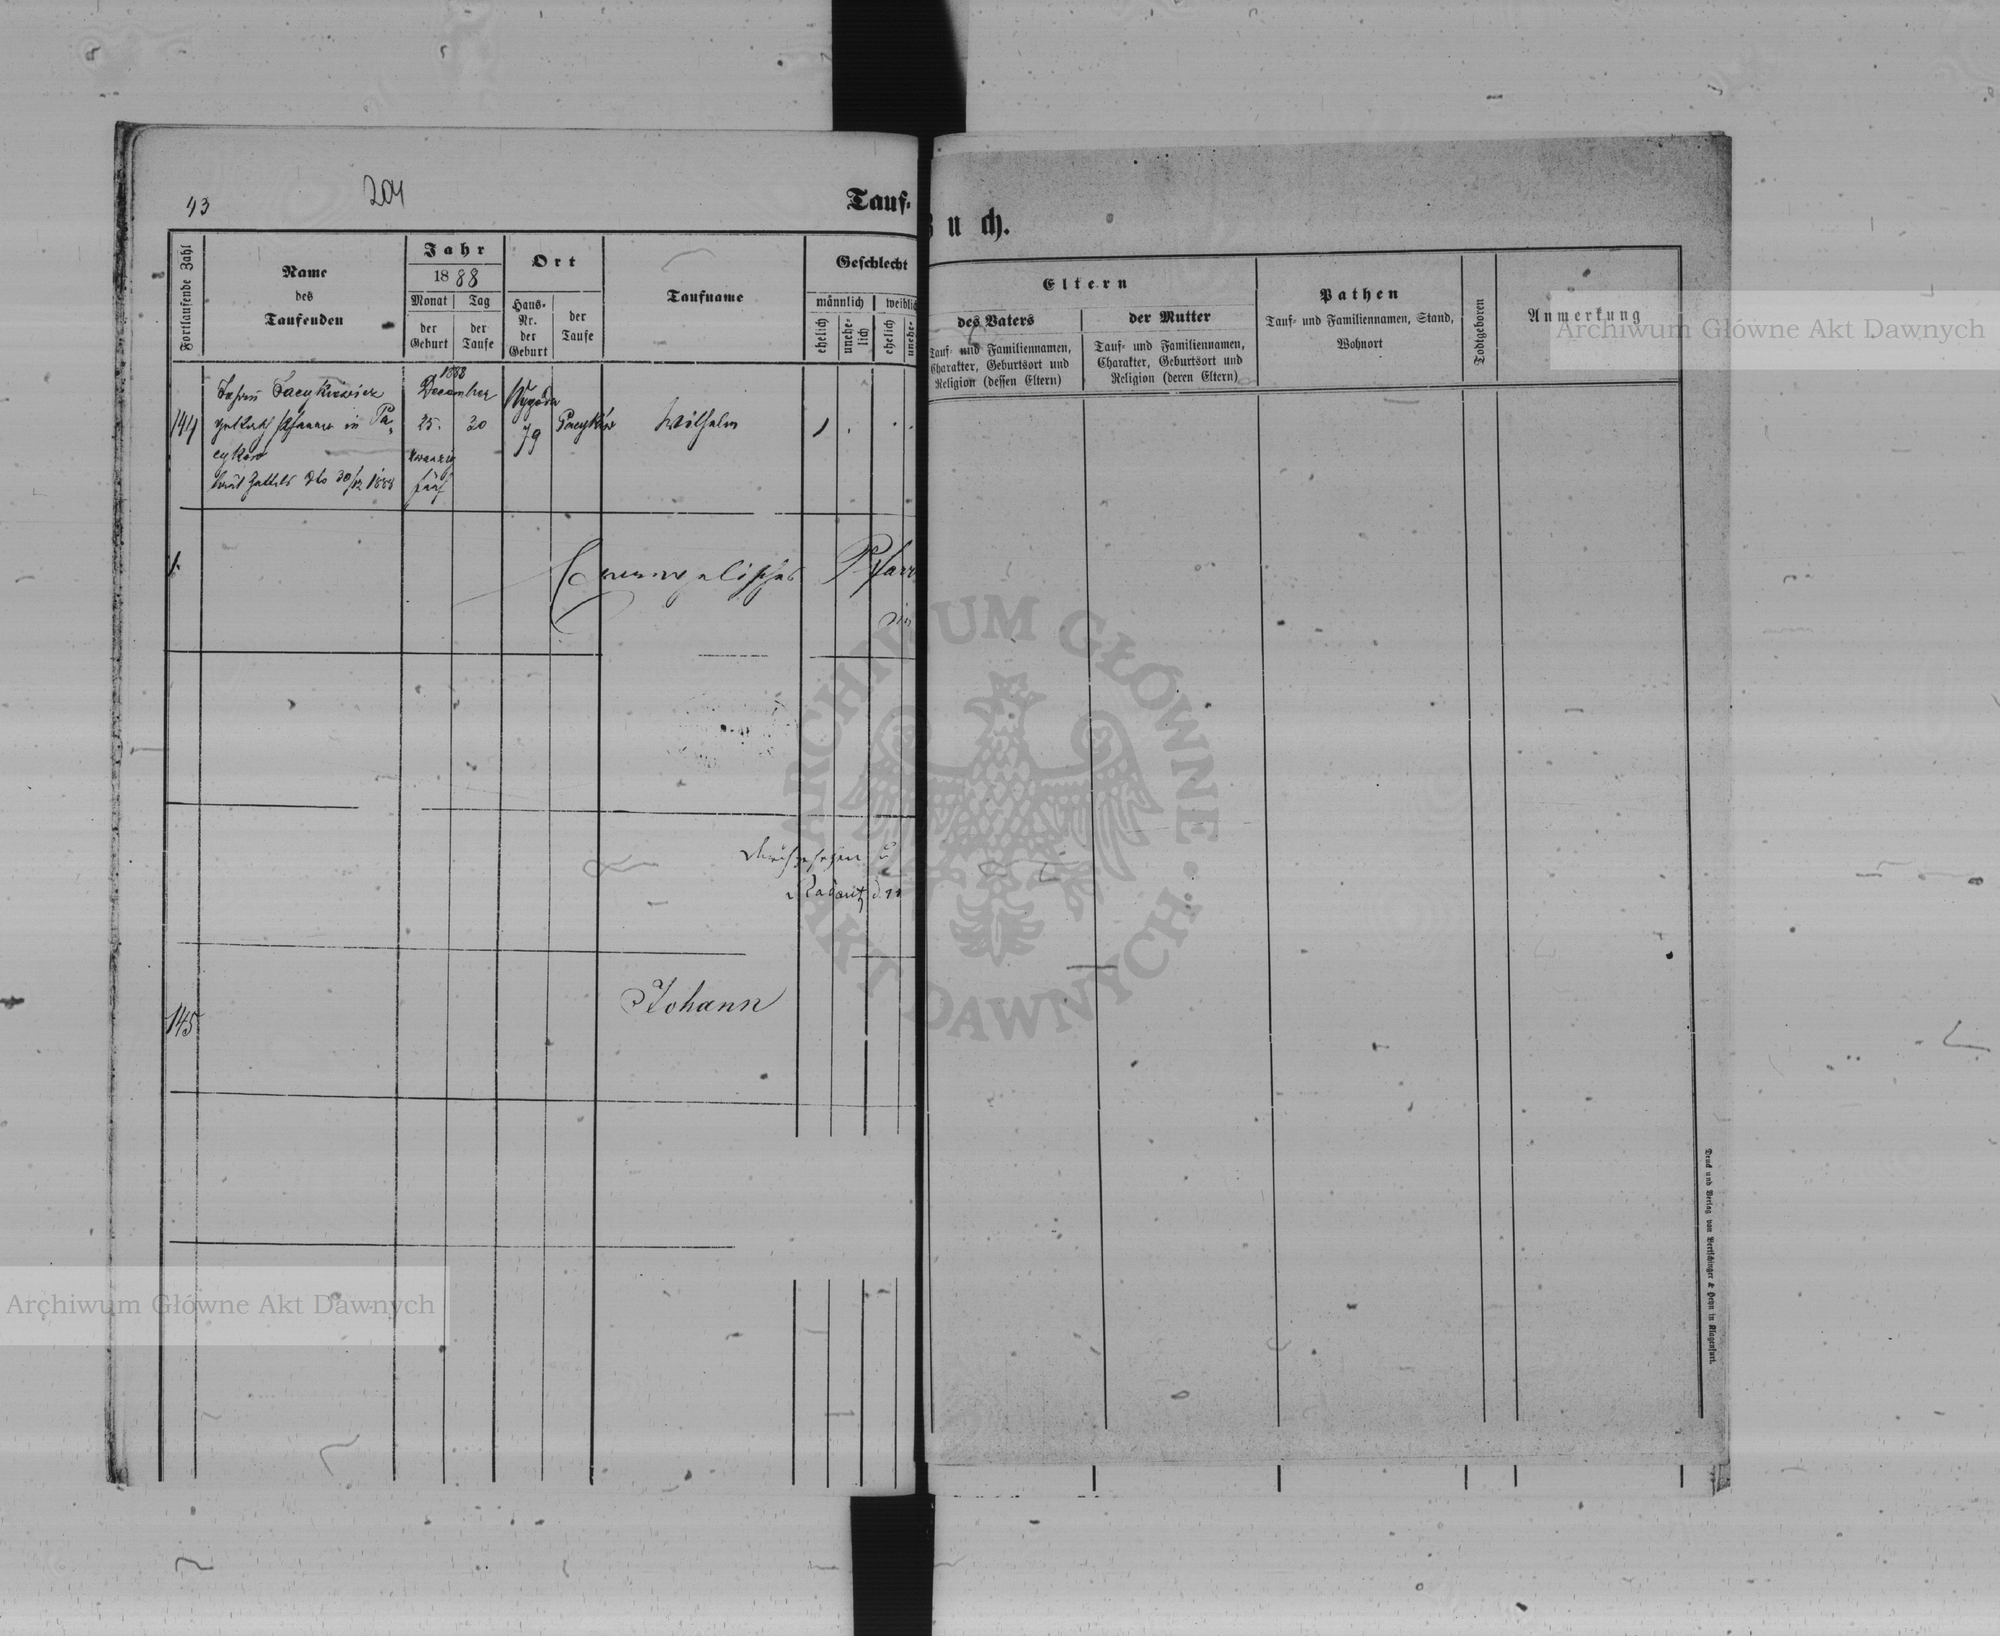 43
204
Tauf-
Buch.
Fortlaufende Zahl
Name
des
Taufenden
Jahr
1888
Monat
Tag
der
Geburt
der
Taufe
Ort
Haus-
Nr.
der
Geburt
der
Taufe
Taufname
Geschlecht
männlich
weiblich
ehelich
unehe-
lich
ehelich
unehe-
Eltern
des Vaters
Tauf- und Familiennamen,
Charakter, Geburtsort und
Religion (dessen Eltern)
der Mutter
Tauf- und Familiennamen,
Charakter, Geburtsort und
Religion (deren Eltern)
Pathen
Tauf- und Familiennamen, Stand,
Wohnort
Todtgeboren
Anmerkung
144
in Pa-
cyków
dto 30/12 1888
1888
December
25.
30
zwanzig
fünf
Wygoda
79
Pacyków
Wilhelm
Evangelisches Pfarr
in
durchgesehen u
Radautz d.
145
Johann
Druck und Verlag von Bertschinger & Heyn in Klagenfurt.
ARCHIWUM GŁÓWNE AKT DAWNYCH
Archiwum Główne Akt Dawnych
Archiwum Główne Akt Dawnych